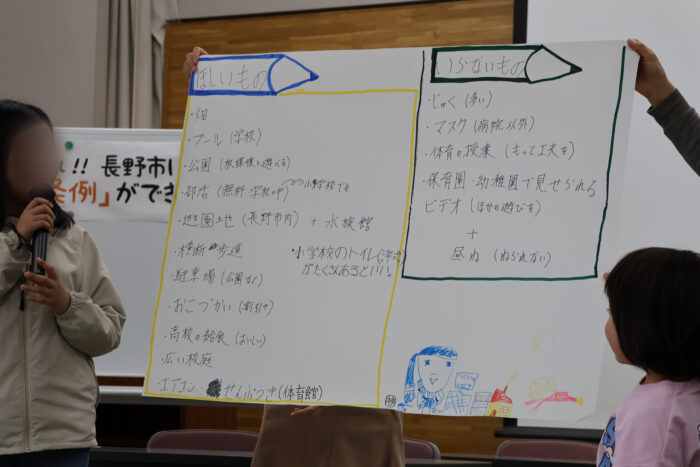 !! 長野市に
条例」ができ
ほしいもの
・畑
・プール (学校)
・公園 (放課後に遊べる)
・部活 (無料・学校の中) 小学校でも
・遊園地 (長野市内) + 水族館
・横断歩道
・小学校のトイレ(洋式)
がたくさんあるといい。
・駐車場 (公園など)
・おこづかい (割引き)
・高校の給食 (おいしい)
・広い校庭
・エアコン・せんぷうき(体育館)
いらないもの
・じゅく (多い)
・マスク (病院以外)
・体育の授業 (もっと工夫も)
・保育園・幼稚園で見せられる
ビデオ (ほかの遊びも)
+
昼ね (ねられない)